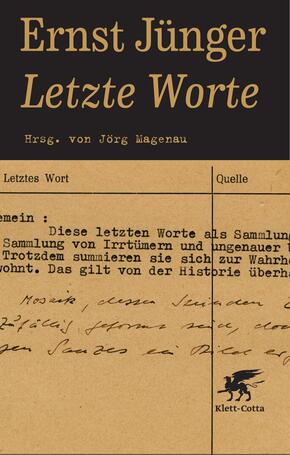 Ernst Jünger
Letzte Worte
Hrsg. von Jörg Magenau
Letztes Wort Quelle
emein :
Diese letzten Worte als Sammlung
Sammlung von Irrtümern und ungenauer
Trotzdem summieren sie sich zur Wahrhe
wohnt. Das gilt von der Historie überha
Mosaik, dessen
zufällig geformt sind, doch
gen Ganzes ein Bild
Klett-Cotta